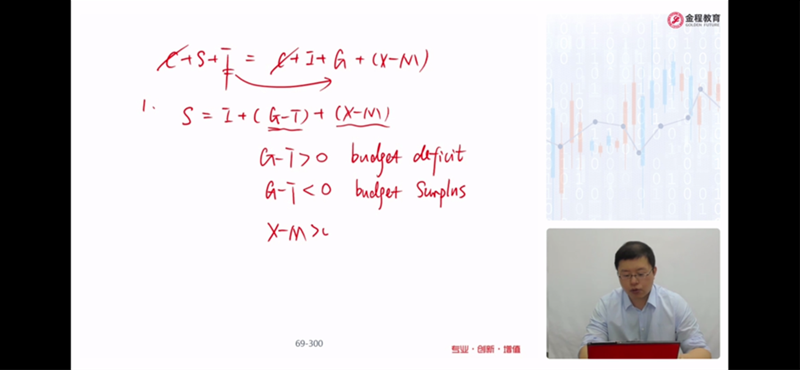 金程教育
GOLDEN FUTURE
C+S+T = C+I+G+(X-M)
1. S = I+(G-T)+(X-M)
G-T>0 budget deficit
G-T<0 budget surplus
X-M>
69-300
专业·创新·增值